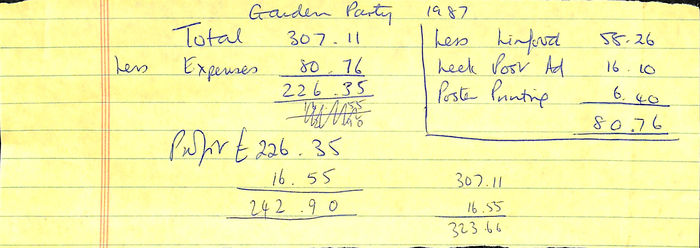 Garden Party 1987
Total 307.11
Less Expenses 80.76
226.35
Profit £226.35
16.55
242.90
Less Linford 58.26
Leek Post Ad 16.10
Poster Printing 6.40
80.76
307.11
16.55
323.66